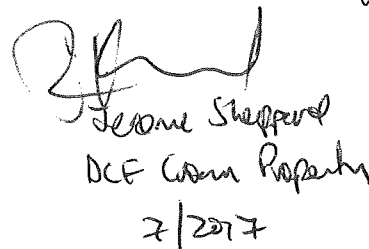 Jerome Sheppard
DCE Crown Property
7/2017